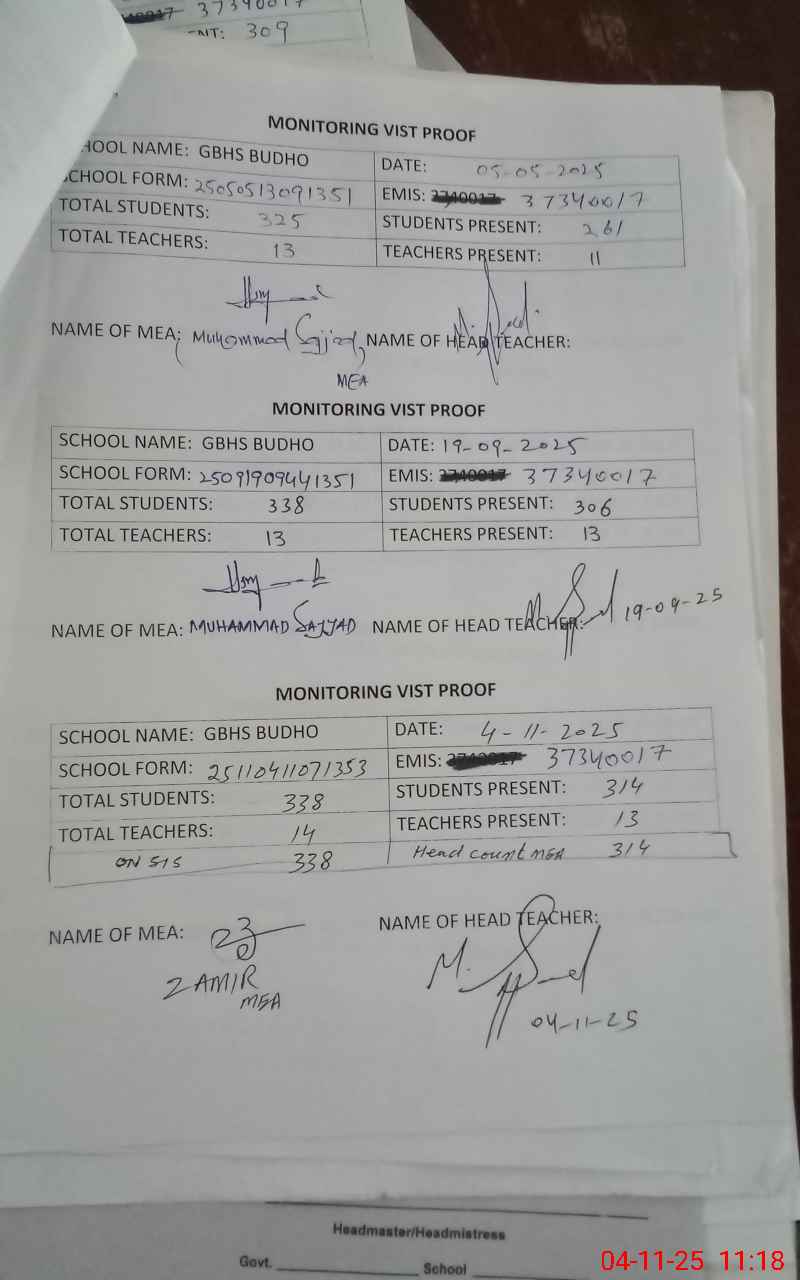 37340017
NT: 309
MONITORING VIST PROOF
HOOL NAME: GBHS BUDHO DATE: 05-05-2025
SCHOOL FORM: 25050513091351 EMIS: 2740017 37340017
TOTAL STUDENTS: 325 STUDENTS PRESENT: 261
TOTAL TEACHERS: 13 TEACHERS PRESENT: 11
NAME OF MEA: Muhammad Sajjad NAME OF HEAD TEACHER:
MEA
MONITORING VIST PROOF
SCHOOL NAME: GBHS BUDHO DATE: 19-09-2025
SCHOOL FORM: 25091909441351 EMIS: 2740017 37340017
TOTAL STUDENTS: 338 STUDENTS PRESENT: 306
TOTAL TEACHERS: 13 TEACHERS PRESENT: 13
19-09-25
NAME OF MEA: MUHAMMAD SAJJAD NAME OF HEAD TEACHER:
MONITORING VIST PROOF
SCHOOL NAME: GBHS BUDHO DATE: 4-11-2025
SCHOOL FORM: 25110411071353 EMIS: 2740017 37340017
TOTAL STUDENTS: 338 STUDENTS PRESENT: 314
TOTAL TEACHERS: 14 TEACHERS PRESENT: 13
ON SIS 338 Head count MEA 314
NAME OF MEA: NAME OF HEAD TEACHER:
ZAMIR
MEA
04-11-25
Headmaster/Headmistress
Govt. School
04-11-25 11:18